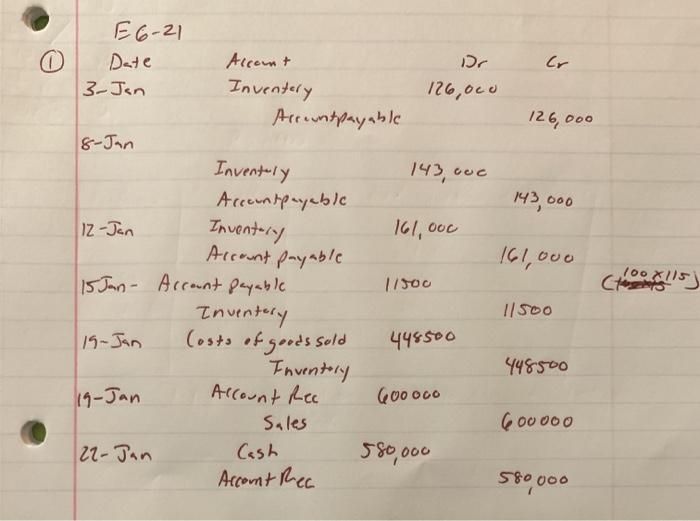 E6-21
① Date Account Dr Cr
3-Jan Inventory 126,000
Accountpayable 126,000
8-Jan
Inventory 143,000
Accountpayable 143,000
12-Jan Inventory 161,000
Account payable 161,000
15 Jan- Account payable 11500 (100 x 115)
Inventory 11500
19-Jan Costs of goods sold 448500
Inventory 448500
19-Jan Account Rec 600000
Sales 600000
22-Jan Cash 580,000
Account Rec 580,000